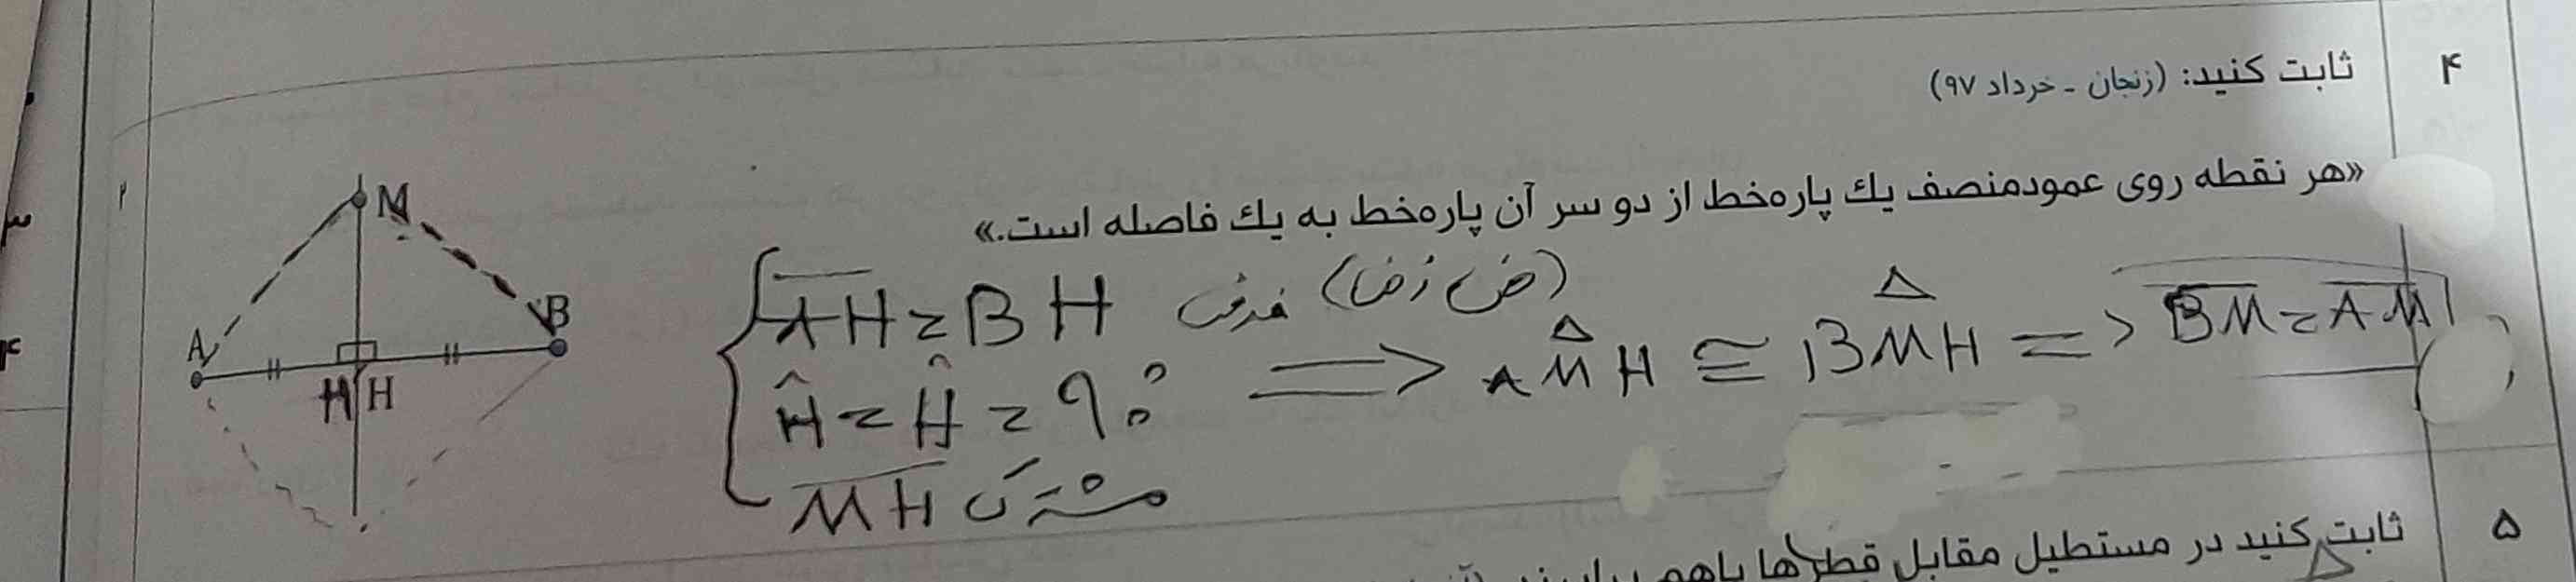 ۴
ثابت کنید: (زنجان - خرداد ۹۷)
«هر نقطه روی عمودمنصف یك پاره‌خط از دو سر آن پاره‌خط به یك فاصله است.»
M
A
B
H H
AH = BH فرض (ض ز ض)
Ĥ = Ĥ = 90° => AMH ≅ BMH => BM = AM
MH مشترک
۵
ثابت کنید در مستطیل مقابل قطرها باهم برابرند
۳
۴